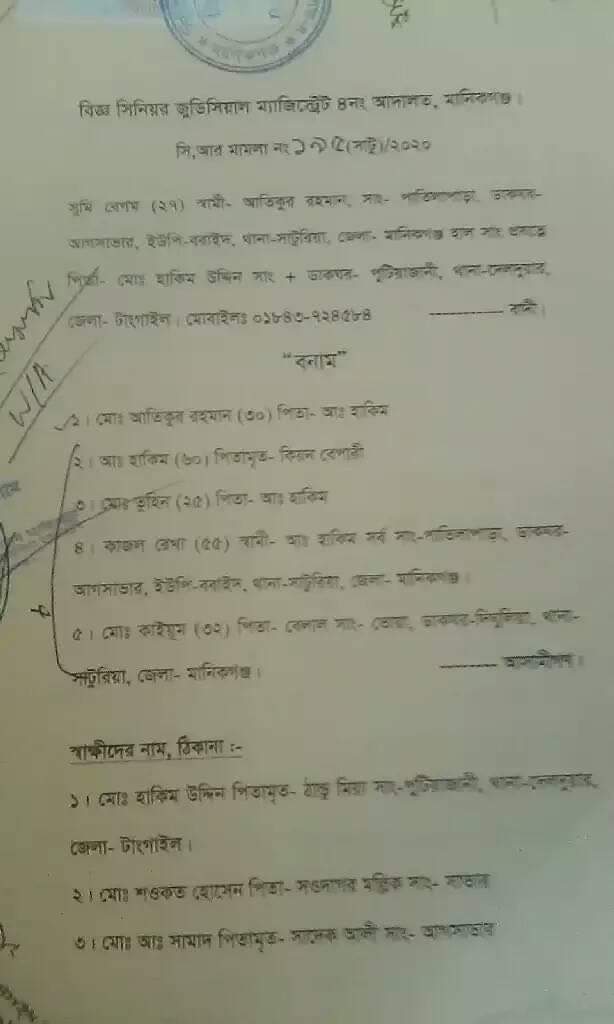 বিজ্ঞ সিনিয়র জুডিসিয়াল ম্যাজিস্ট্রেট ৪নং আদালত, মানিকগঞ্জ।
সি,আর মামলা নং ১৭৫(সাটু)/২০২০
সুমি বেগম (২৭) স্বামী- আতিকুর রহমান, সাং- পাতিলাপাড়া, ডাকঘর-
আগসাভার, ইউপি-বরাইদ, থানা-সাটুরিয়া, জেলা- মানিকগঞ্জ হাল সাং প্রযত্নে
পিতা- মোঃ হাকিম উদ্দিন সাং + ডাকঘর- পুটিয়াজানী, থানা-দেলদুয়ার,
জেলা- টাংগাইল। মোবাইলঃ ০১৮৪৩-৭২৪৫৮৪ ---------- বাদী।
"বনাম"
W/A
১। মোঃ আতিকুর রহমান (৩০) পিতা- আঃ হাকিম
২। আঃ হাকিম (৬০) পিতামৃত- কিয়ন বেপারী
৩। মোঃ তুহিন (২৫) পিতা- আঃ হাকিম
৪। কাজল রেখা (৫৫) স্বামী- আঃ হাকিম সর্ব সাং-পাতিলাপাড়া, ডাকঘর-
আগসাভার, ইউপি-বরাইদ, থানা-সাটুরিয়া, জেলা- মানিকগঞ্জ।
৫। মোঃ কাইয়ুম (৩২) পিতা- বেলাল সাং- ডাকঘর- থানা-
সাটুরিয়া, জেলা- মানিকগঞ্জ। -------- আসামীগণ।
স্বাক্ষীদের নাম, ঠিকানা :-
১। মোঃ হাকিম উদ্দিন পিতামৃত- ঠান্ডু মিয়া সাং-পুটিয়াজানী, থানা-দেলদুয়ার,
জেলা- টাংগাইল।
২। মোঃ শওকত হোসেন পিতা- সওদাগর মল্লিক সাং- সাভার
৩। মোঃ আঃ সামাদ পিতামৃত- সাদেক আলী সাং- আগসাভার